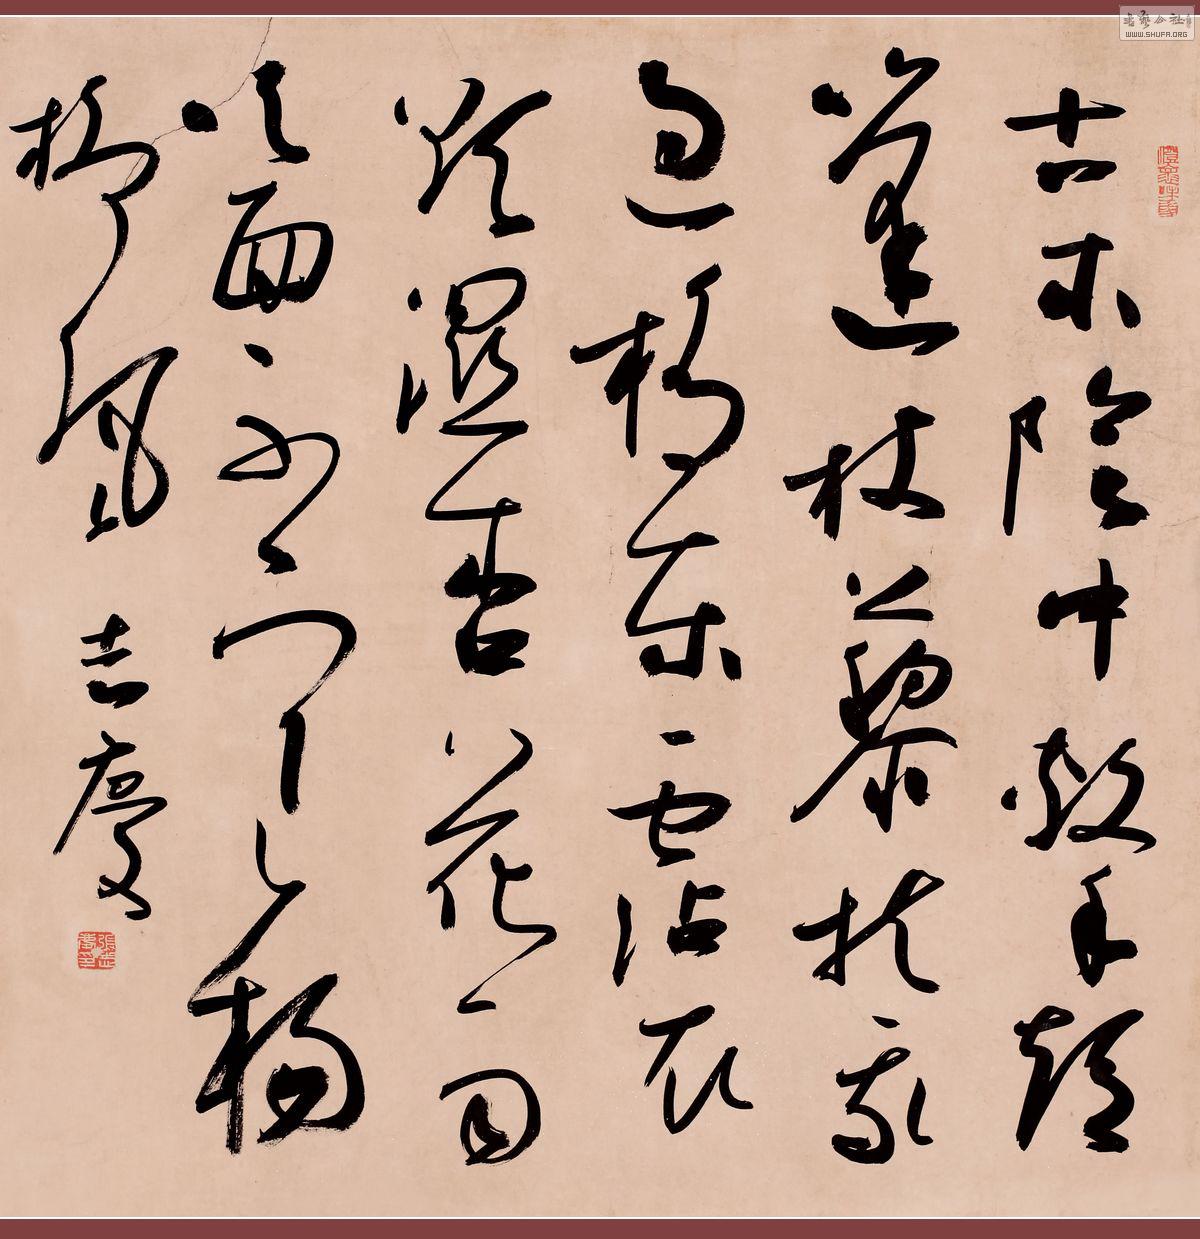 古木陰中繫短
篷杖藜扶我
過橋東霑衣
欲濕杏花雨
吹面不寒楊
柳風 志慶
張志慶印
书艺公社
WWW.SHUFA.ORG